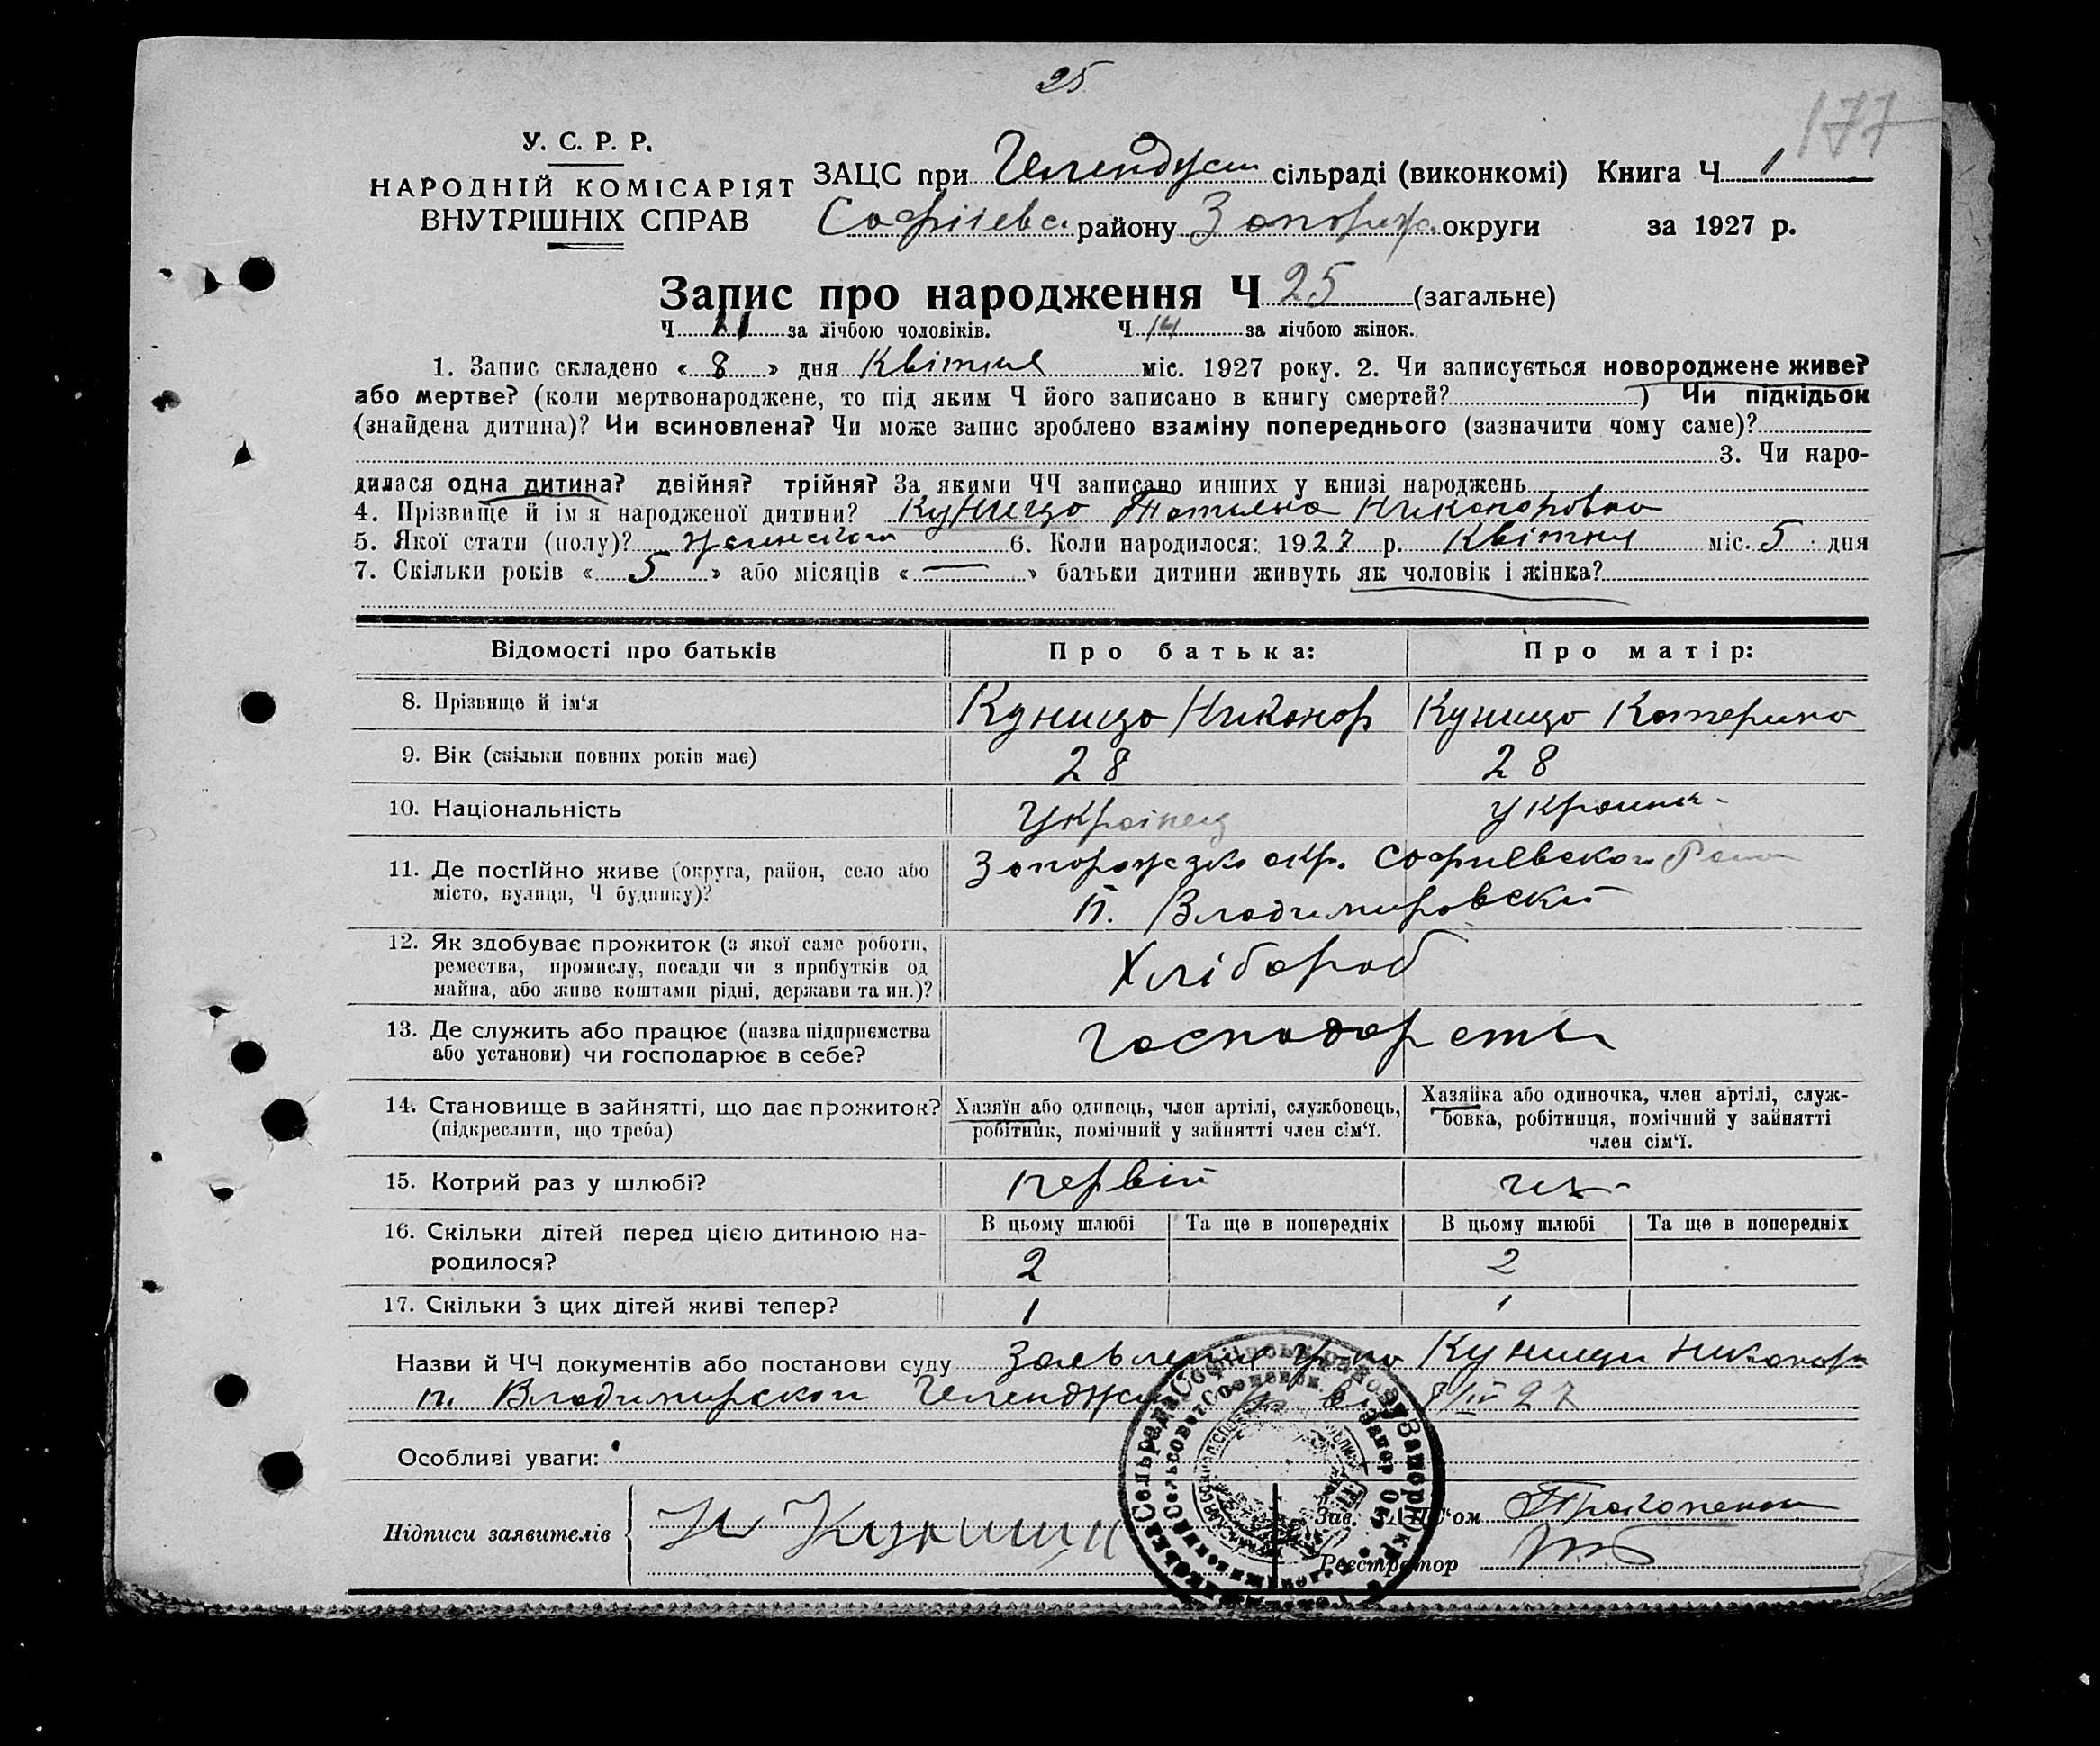 25
177
У. С. Р. Р.
НАРОДНІЙ КОМІСАРІЯТ
ВНУТРІШНІХ СПРАВ
ЗАЦС при сільраді (виконкомі) Книга Ч 1
Софиівс. району Запоріж. округи за 1927 р.
Запис про народження Ч 25 (загальне)
Ч 11 за лічбою чоловіків. Ч 14 за лічбою жінок.
1. Запис складено « 8 » дня Квітня міс. 1927 року. 2. Чи записується новороджене живе?
або мертве? (коли мертвонароджене, то під яким Ч його записано в книгу смертей? ) Чи підкідьок
(знайдена дитина)? Чи всиновлена? Чи може запис зроблено взаміну попереднього (зазначити чому саме)?
3. Чи наро-
дилася одна дитина? двійня? трійня? За якими ЧЧ записано инших у книзі народжень
4. Прізвище й ім я народженої дитини? Куница Татьяна Никаноровна
5. Якої стати (полу)? женского 6. Коли народилося: 1927 р. Квітня міс. 5 дня
7. Скільки років « 5 » або місяців « — » батьки дитини живуть як чоловік і жінка?
Відомості про батьків Про батька: Про матір:
8. Прізвище й ім‘я Куница Никанор Куница Катерина
9. Вік (скільки повних років має) 28 28
10. Національність Українец украинк-
11. Де постійно живе (округа, район, село або
місто, вулиця, Ч будинку)?
окр. Софиевского
п. Владимировский
12. Як здобуває прожиток (з якої саме роботи,
ремества, промислу, посади чи з прибутків од
майна, або живе коштами рідні, держави та ин.)?
Хлібороб
13. Де служить або працює (назва підприємства
або установи) чи господарює в себе?
14. Становище в зайнятті, що дає прожиток?
(підкреслити, що треба)
Хазяїн або одинець, член артілі, службовець,
робітник, помічний у зайнятті член сім‘ї.
Хазяйка або одиночка, член артілі, служ-
бовка, робітниця, помічний у зайнятті
член сім‘ї.
15. Котрий раз у шлюбі? первій
16. Скільки дітей перед цією дитиною на-
родилося?
В цьому шлюбі Та ще в попередніх В цьому шлюбі Та ще в попередніх
2 2
17. Скільки з цих дітей живі тепер? 1 1
Назви й ЧЧ документів або постанови суду Заявление гр-на Куници Никанора
п. 8/IV 27
Особливі уваги:
Підписи заявителів Н Куниц
Зав. ЗАЦС‘ом
Реєстратор